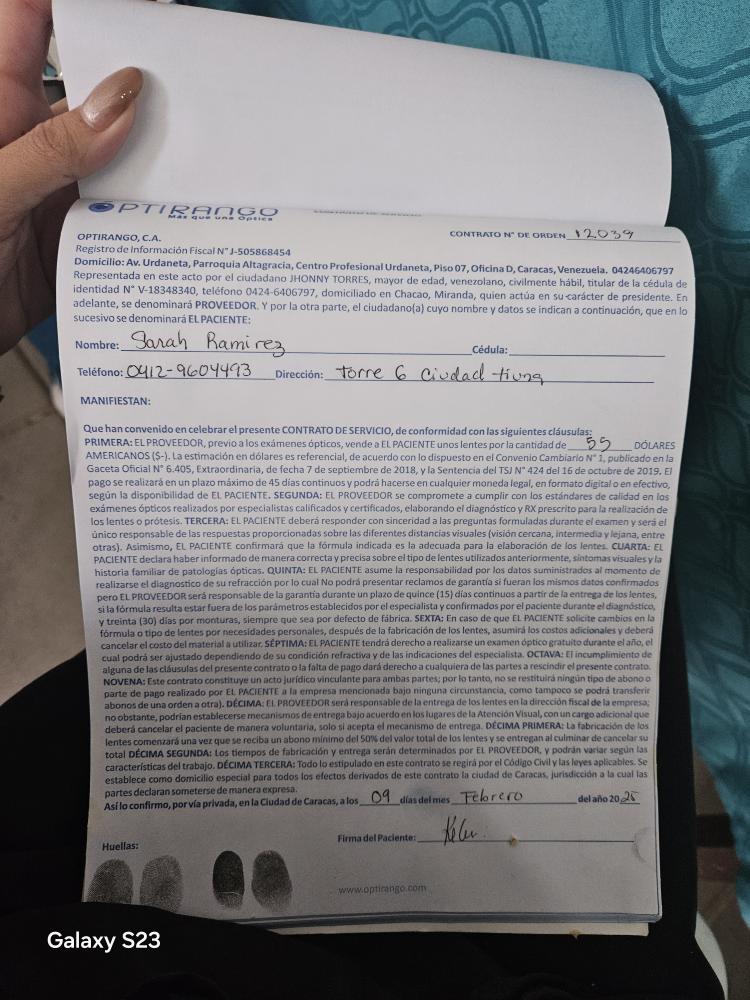 OPTIRANGO
Más que una Óptica
CONTRATO N° DE ORDEN 12039
OPTIRANGO, C.A.
Registro de Información Fiscal N° J-505868454
Domicilio: Av. Urdaneta, Parroquia Altagracia, Centro Profesional Urdaneta, Piso 07, Oficina D, Caracas, Venezuela. 04246406797
Representada en este acto por el ciudadano JHONNY TORRES, mayor de edad, venezolano, civilmente hábil, titular de la cédula de
identidad N° V-18348340, teléfono 0424-6406797, domiciliado en Chacao, Miranda, quien actúa en su carácter de presidente. En
adelante, se denominará PROVEEDOR. Y por la otra parte, el ciudadano(a) cuyo nombre y datos se indican a continuación, que en lo
sucesivo se denominará EL PACIENTE:
Nombre: Sarah Ramirez Cédula:
Teléfono: 0412-9604493 Dirección: Torre 6 Ciudad tiuna
MANIFIESTAN:
Que han convenido en celebrar el presente CONTRATO DE SERVICIO, de conformidad con las siguientes cláusulas:
PRIMERA: EL PROVEEDOR, previo a los exámenes ópticos, vende a EL PACIENTE unos lentes por la cantidad de 55 DÓLARES
AMERICANOS ($-). La estimación en dólares es referencial, de acuerdo con lo dispuesto en el Convenio Cambiario N° 1, publicado en la
Gaceta Oficial N° 6.405, Extraordinaria, de fecha 7 de septiembre de 2018, y la Sentencia del TSJ N° 424 del 16 de octubre de 2019. El
pago se realizará en un plazo máximo de 45 días continuos y podrá hacerse en cualquier moneda legal, en formato digital o en efectivo,
según la disponibilidad de EL PACIENTE. SEGUNDA: EL PROVEEDOR se compromete a cumplir con los estándares de calidad en los
exámenes ópticos realizados por especialistas calificados y certificados, elaborando el diagnóstico y RX prescrito para la realización de
los lentes o prótesis. TERCERA: EL PACIENTE deberá responder con sinceridad a las preguntas formuladas durante el examen y será el
único responsable de las respuestas proporcionadas sobre las diferentes distancias visuales (visión cercana, intermedia y lejana, entre
otras). Asimismo, EL PACIENTE confirmará que la fórmula indicada es la adecuada para la elaboración de los lentes. CUARTA: EL
PACIENTE declara haber informado de manera correcta y precisa sobre el tipo de lentes utilizados anteriormente, síntomas visuales y la
historia familiar de patologías ópticas. QUINTA: EL PACIENTE asume la responsabilidad por los datos suministrados al momento de
realizarse el diagnostico de su refracción por lo cual No podrá presentar reclamos de garantía si fueran los mismos datos confirmados
pero EL PROVEEDOR será responsable de la garantía durante un plazo de quince (15) días continuos a partir de la entrega de los lentes,
si la fórmula resulta estar fuera de los parámetros establecidos por el especialista y confirmados por el paciente durante el diagnóstico,
y treinta (30) días por monturas, siempre que sea por defecto de fábrica. SEXTA: En caso de que EL PACIENTE solicite cambios en la
fórmula o tipo de lentes por necesidades personales, después de la fabricación de los lentes, asumirá los costos adicionales y deberá
cancelar el costo del material a utilizar. SÉPTIMA: EL PACIENTE tendrá derecho a realizarse un examen óptico gratuito durante el año, el
cual podrá ser ajustado dependiendo de su condición refractiva y de las indicaciones del especialista. OCTAVA: El incumplimiento de
alguna de las cláusulas del presente contrato o la falta de pago dará derecho a cualquiera de las partes a rescindir el presente contrato.
NOVENA: Este contrato constituye un acto jurídico vinculante para ambas partes; por lo tanto, no se restituirá ningún tipo de abono o
parte de pago realizado por EL PACIENTE a la empresa mencionada bajo ninguna circunstancia, como tampoco se podrá transferir
abonos de una orden a otra). DÉCIMA: EL PROVEEDOR será responsable de la entrega de los lentes en la dirección fiscal de la empresa;
no obstante, podrían establecerse mecanismos de entrega bajo acuerdo en los lugares de la Atención Visual, con un cargo adicional que
deberá cancelar el paciente de manera voluntaria, solo si acepta el mecanismo de entrega. DÉCIMA PRIMERA: La fabricación de los
lentes comenzará una vez que se reciba un abono mínimo del 50% del valor total de los lentes y se entregan al culminar de cancelar su
total DÉCIMA SEGUNDA: Los tiempos de fabricación y entrega serán determinados por EL PROVEEDOR, y podrán variar según las
características del trabajo. DÉCIMA TERCERA: Todo lo estipulado en este contrato se regirá por el Código Civil y las leyes aplicables. Se
establece como domicilio especial para todos los efectos derivados de este contrato la ciudad de Caracas, jurisdicción a la cual las
partes declaran someterse de manera expresa.
Así lo confirmo, por vía privada, en la Ciudad de Caracas, a los 09 días del mes Febrero del año 2025
Firma del Paciente:
Huellas:
www.optirango.com
Galaxy S23